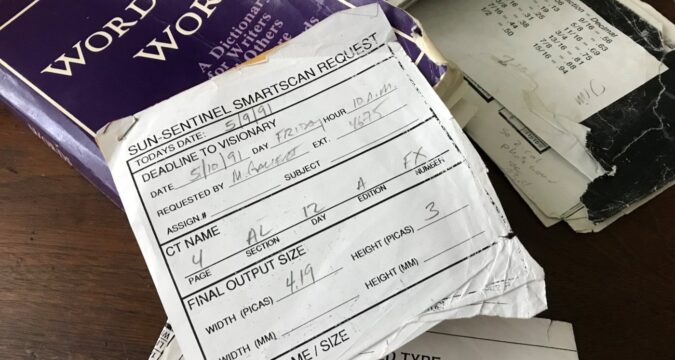 WORD
WOR
A Dictionary
for Writers
Others
ds
SUN-SENTINEL SMARTSCAN REQUEST
TODAYS DATE: 5/9/91
DEADLINE TO VISIONARY
DATE 5/10/91 DAY FRIDAY HOUR 10 A.M.
REQUESTED BY M. EXT. 4675
ASSIGN.# SUBJECT
4 AL 12 A FX
CT NAME PAGE SECTION DAY EDITION NUMBER
FINAL OUTPUT SIZE
WIDTH (PICAS) 4.19 HEIGHT (PICAS) 3
WIDTH (MM) HEIGHT (MM)
ME / SIZE
ction Decimal
9/16=.56
11/16=.69
3/4=.75
13/16=.81
7/8=.88
15/16=.94
=.13
=.19
=.25
=.31
=.38
=.44
1/2=.50
M/C
TYPE